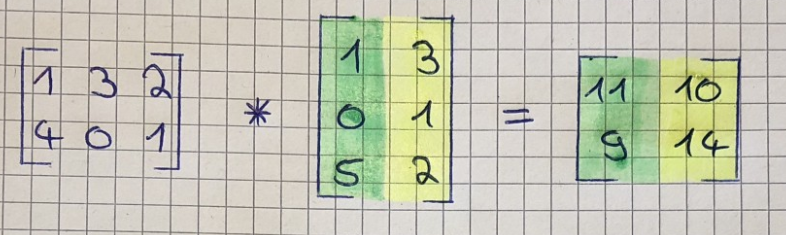 1 3 2
4 0 1
*
1 3
0 1
5 2
=
11 10
9 14